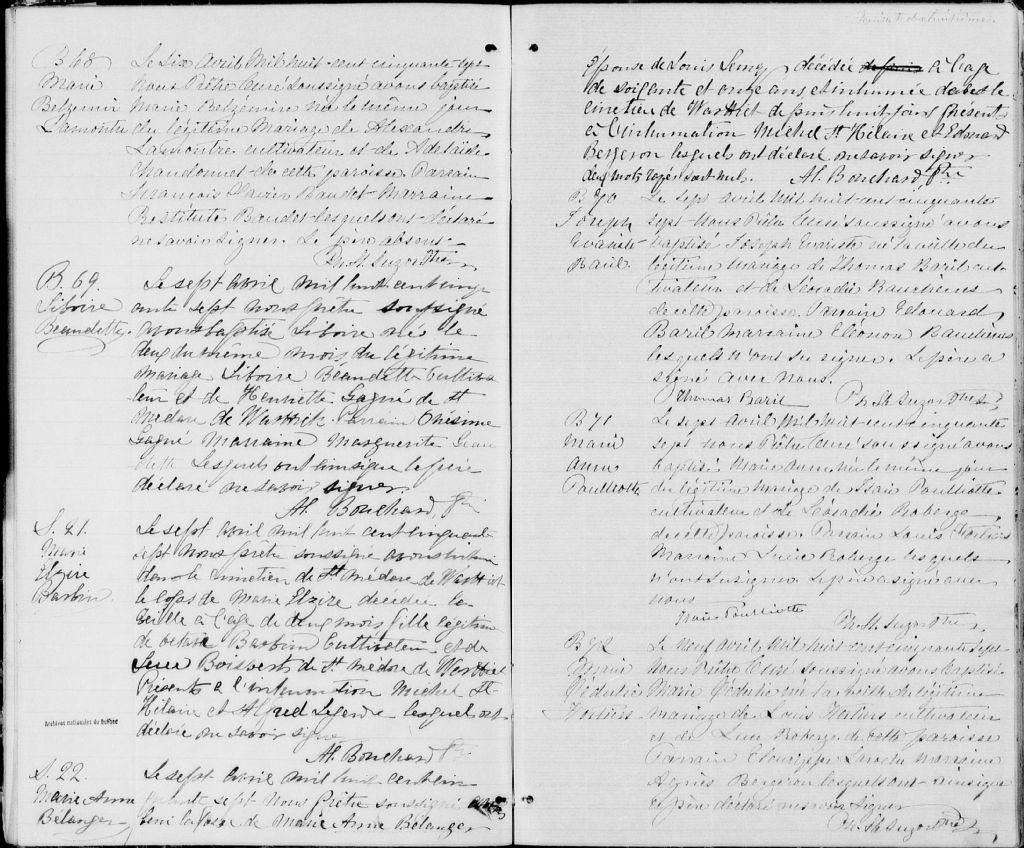 B 68
Marie
Belzemir
Lamontre
Le Six Avril Mil huit-cent cinquante sept
Nous Prêtre Curé Soussigné avons baptisé
Marie Belzémire née le même jour
du légitime Mariage de Alexandre
Lamontre cultivateur et de Adelaïde
Chandonnet de cette paroisse. Parrain
François Xavier Baudet Marraine
Restitute Baudet lesquels ont déclaré
ne savoir signer. Le père absent
Ph. H. Suzor Ptre
B. 69.
Liboire
Beaudette.
Le sept avril mil huit cent cinqu
ante sept nous prêtre soussigné
avons baptisé Liboire né le
deux du même mois du légitime
mariage Liboire Beaudette Cultiva
teur et de Henriette Gagné de St
Médare de Warwick. Parrain Onésime
Gagné Marraine Marguerite
Lesquels ont ainsi que le père
déclaré ne savoir signer
Al. Bouchard, Ptre
S. 21.
Marie
Elzire
Barbin.
Le sept avril mil huit cent cinquante
sept nous prêtre soussigné avons inhumé
dans le cimetière de St médare de Warwick
le corps de Marie Elzire décédée la
veille à l'âge de deux mois fille légitime
de octave Barbin Cultivateur et de
Luce Boisvert de St médare de Warwick
Présents à l'inhumation Michel St
Hilaire et Alfred Legendre lesquels ont
déclaré ne savoir signer
Al. Bouchard Ptre
Archives nationales du Québec
S. 22.
Marie Anne
Bélanger
Le sept avril mil huit cent cin
quante sept Nous Prêtre soussigné avons
le corps de Marie Anne Bélanger
Épouse de Louis décédée à l'age
de soixante et onze ans et inhumée dans le
cimetière de Warwick depuis huit jours présents
à l'inhumation Michel St Hilaire et Edouard
Bergeron lesquels ont déclaré ne savoir signer
deux mots rayés sont nuls. Al. Bouchard, Ptre
B 70
Joseph
Evariste
Baril.
Le Sept avril mil huit cent cinquante
sept Nous Prêtre Curé soussigné avons
baptisé Joseph Evariste né la veille du
légitime mariage de Thomas Baril cul-
tivateur et de Léocadie Bauchènes
de cette paroisse. Parrain Edouard
Baril Marraine Eléonore Bauchènes
lesquels n'ont su signer. Le père a
signé avec nous.
Thomas Baril Ph. H. Suzor Ptre
B 71
Marie
Anne
Paulliotte
Le sept avril mil huit cent cinquante
sept Nous Prêtre Curé soussigné avons
baptisé Marie Anne née le même jour
du légitime mariage de Isaïe Paulliotte
cultivateur et de Léocadie Roberge
de cette paroisse. Parrain Louis Fortiers
Marraine Luce Roberge lesquels
n'ont su signer. Le père a signé avec
nous
Isaïe Paulliotte
Ph. H. Suzor Ptre
B 72
Marie
Fortiers
Le neuf avril mil huit cent cinquante sept
Nous Prêtre Curé soussigné avons baptisé
Marie née la veille du légitime
mariage de Louis Fortiers cultivateur
et de Luce Roberge de cette paroisse
Parrain Laroche Marraine
Agnès Bergeron lesquels ont ainsi que
le père déclaré ne savoir signer
Ph. H. Suzor Ptre